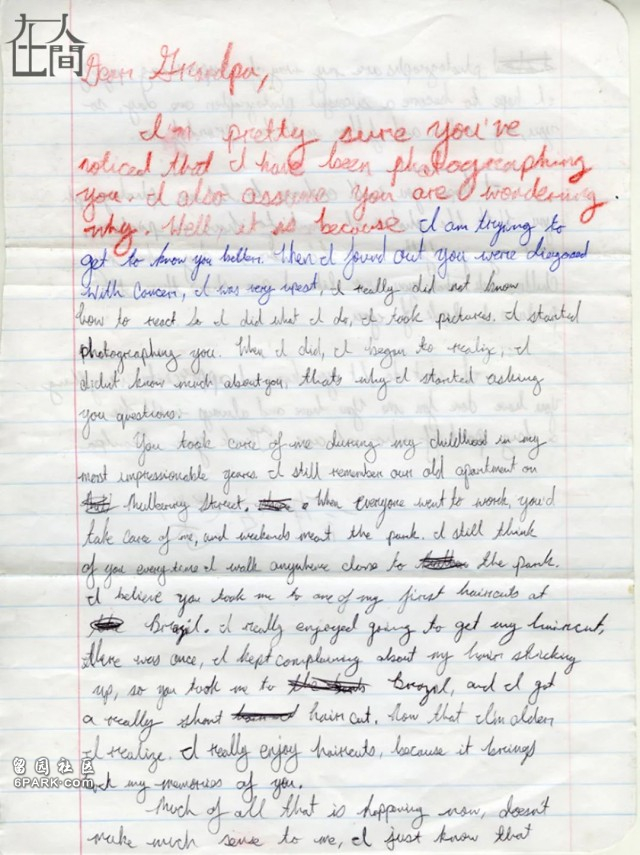 在人間
Dear Grandpa,
I'm pretty sure you've
noticed that I have been photographing
you. I also assume you are wondering
why. Well it is because I am trying to
get to know you better. When I found out you were diagnosed
with cancer, I was very upset, I really did not know
how to react so I did what I do, I took pictures. I started
photographing you. When I did, I began to realize, I
didn't know much about you, thats why I started asking
you questions.
You took care of me during my childhood in my
most impressionable years. I still remember our old apartment on
Mulberry Street. When everyone went to work, you'd
take care of me, and weekends meant the park. I still think
of you everytime I walk anywhere close to the park.
I believe you took me to one of my first haircuts at
Brazil. I really enjoyed going to get my haircut,
there was once, I kept complaining about my hair sticking
up, so you took me to Brazil, and I got
a really short haircut. Now that I'm older
I realize. I really enjoy haircuts, because it brings
my memories of you.
Much of all that is happening now, doesn't
make much sense to me, I just know that
留园社区
6PARK.com